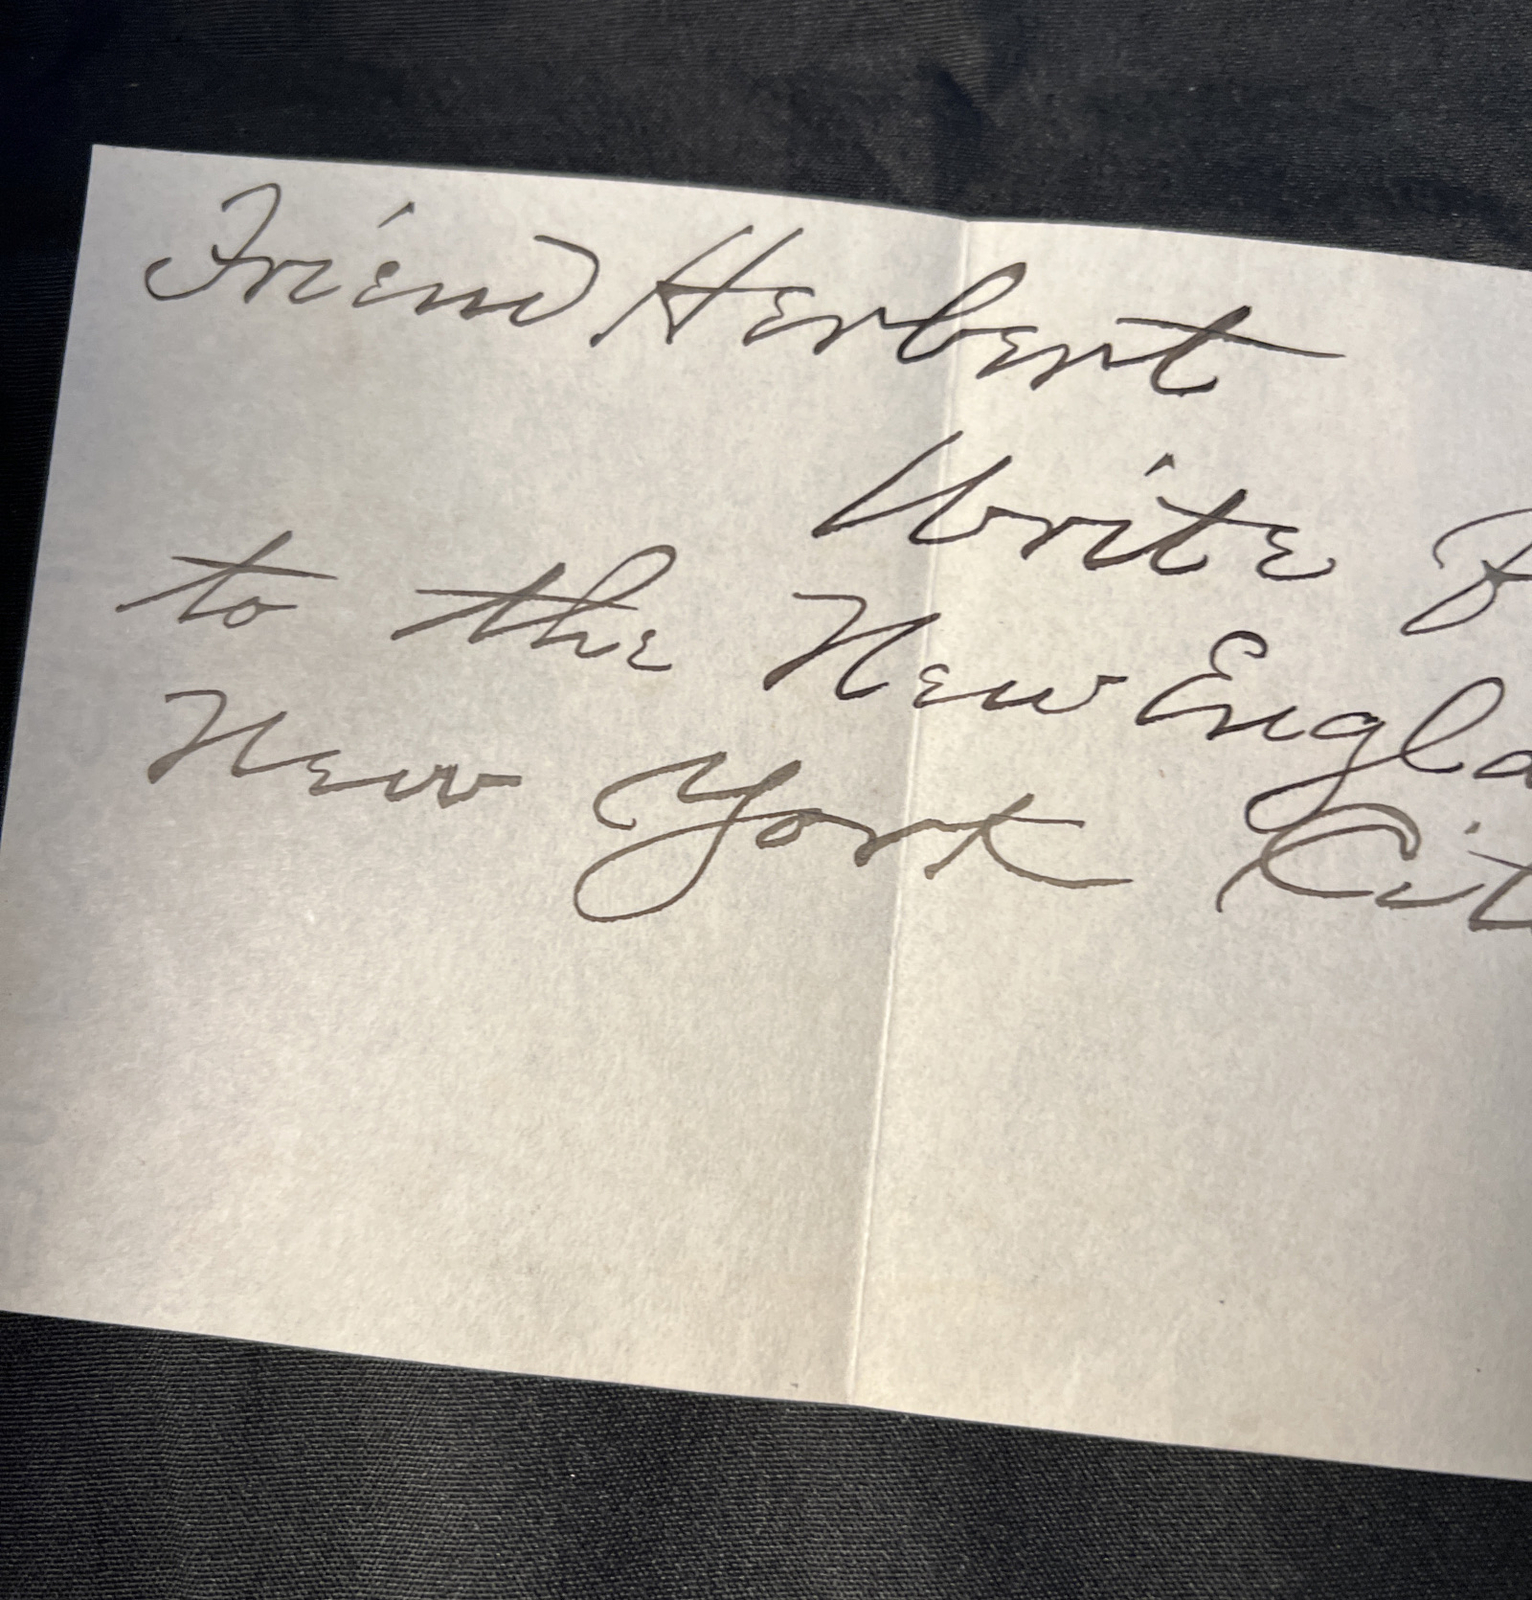 Friend Herbert
Write
to the New Engla
New York Cit